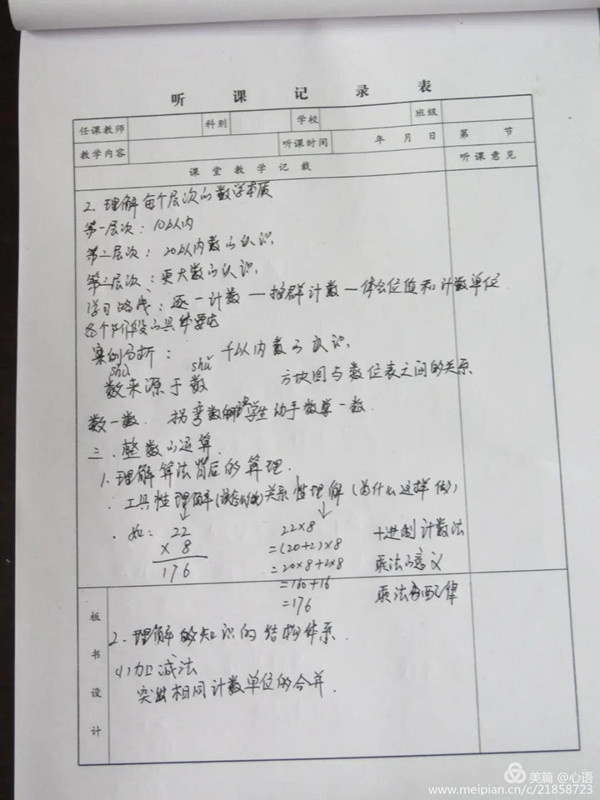 听课记录表
任课教师 科别 学校 班级
教学内容 听课时间 年 月 日 第 节
课堂教学记载 听课意见
2. 理解每个层次的数学本质
第一层次：10以内
第二层次：20以内数的认识
第三层次：更大数的认识
学习路线：逐一计数—按群计数—体会位值和计数单位
各个阶段的具体要求
案例分析： 千以内数的认识
shù shǔ
数来源于数 方块图与数位表之间的关系
数一数 拐弯数 学生动手数一数
三、整数的运算
1. 理解算法背后的算理
工具性理解(怎么做)关系性理解(为什么这样做)
·如： 22 22×8 十进制计数法
× 8 =(20+2)×8
176 =20×8+2×8 乘法的意义
=160+16
=176 乘法分配律
板书设计
2. 理解的知识的结构体系
(1)加减法
突出相同计数单位的合并
美篇 @心语
www.meipian.cn/c/21858723